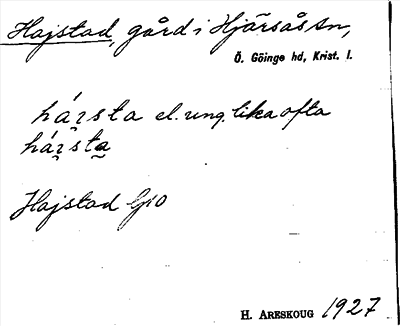 Hajstad, gård i Hjärsås sn,
Ö. Göinge hd, Krist. l.
há̱ı̨sta el. ung. lika ofta
há̱ı̨sta̱
Hajstad GSO
H. ARESKOUG 1927